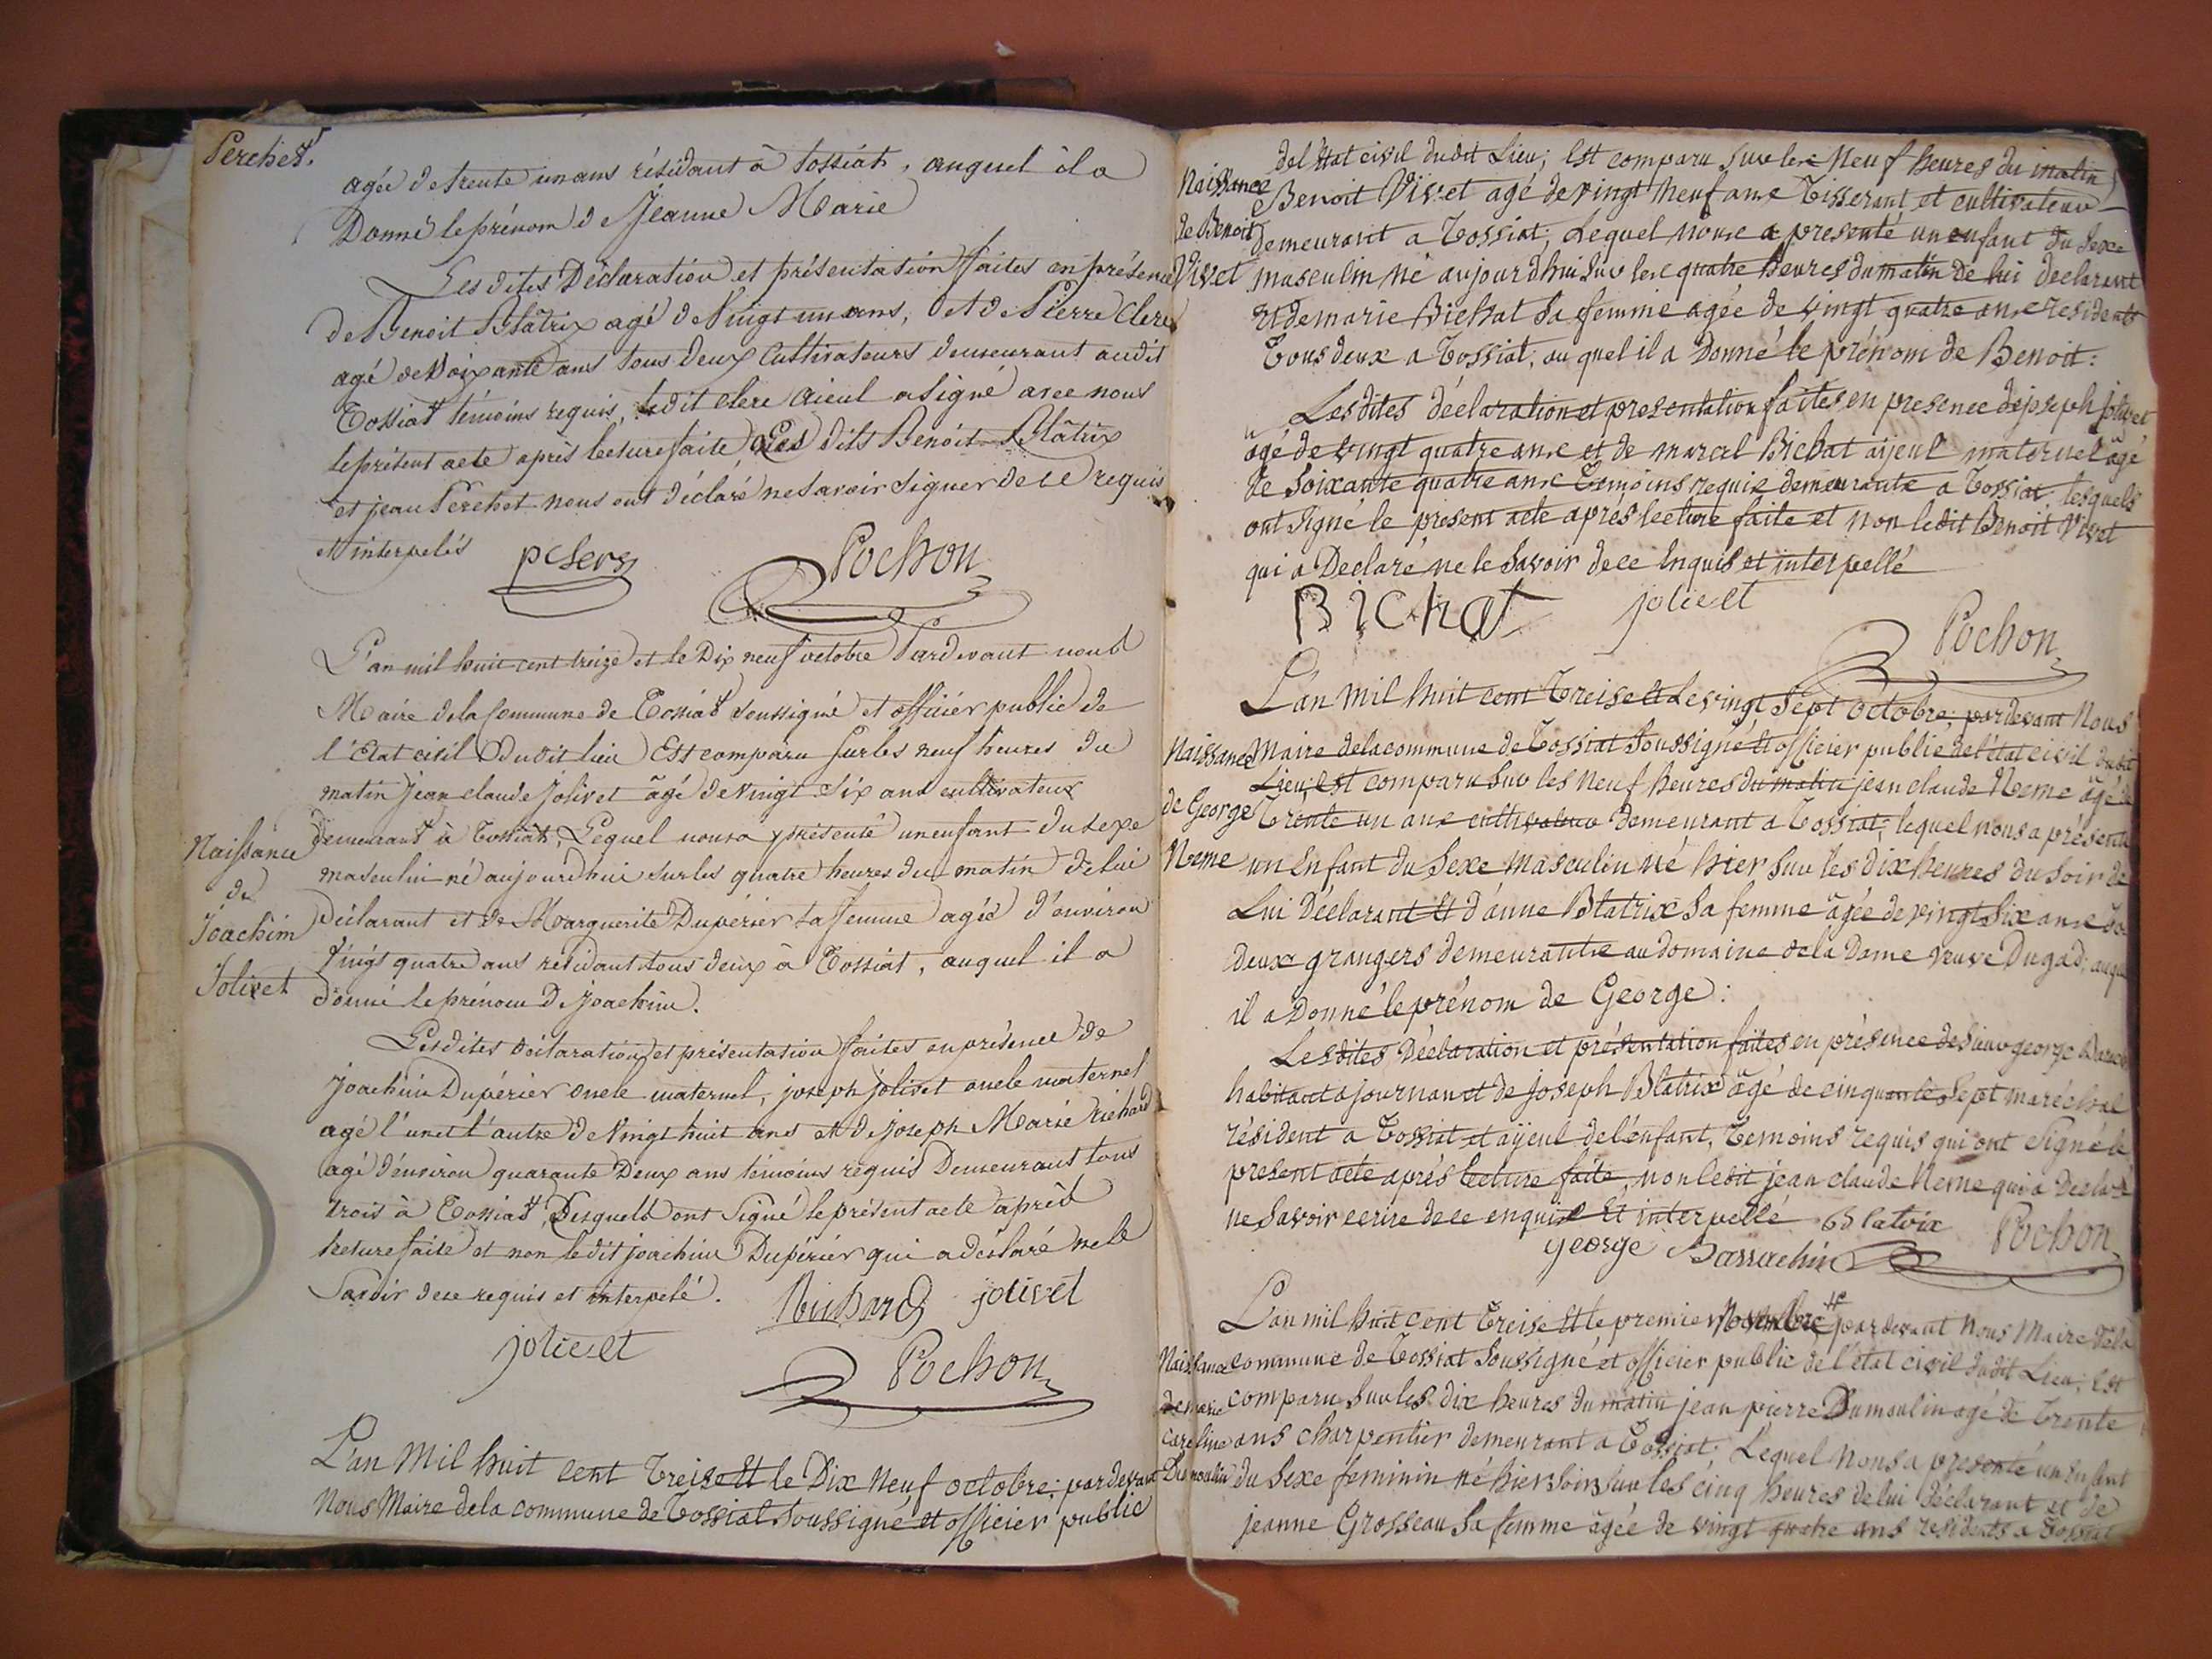 Perchet.
agée de trente un ans résidant à tossiat, auquel il a
Donné le prénom de Jeanne Marie
Les dites Déclaration et présentation faites en présence
de Benoit Blâtrix agé de Vingt un ans, et de Pierre Clerc
agé de Soixante ans tous deux Cultivateurs demeurant audit
Tossiat témoins requis, ledit clerc aieul a signé avec nous
le présent acte après lecture faite, Les dits Benoit Blâtrix
et jean Perchet nous ont déclaré ne savoir signer de ce requis
et interpelés
pclerc Pochon
L'an mil huit cent treize et le Dix neuf octobre Pardevant nous
Maire de la Commune de Tossiat soussigné et officier public de
l'Etat civil Dudit lieu Est comparu sur les neuf heures du
matin Jean claude Jolivet âgé de vingt Six ans cultivateur
demeurant à Tossiat, Lequel nous a présenté un enfant du sexe
masculin né aujourdhui sur les quatre heures du matin de lui
déclarant et de Marguerite Dupérier sa femme agée d'environ
Vingt quatre ans residant tous deux à Tossiat, auquel il a
donné le prénom De Joachim.
Naissance
de
Joachim
Jolivet
Les dites déclaration et présentation faites en présence de
Joachim Dupérier oncle maternel, joseph jolivet oncle paternel
agé l'un et l'autre de Vingt huit ans et de joseph Marie richard
agé d'environ quarante Deux ans témoins requis Demeurant tous
trois à Tossiat, Lesquels ont Signé le présent acte après
lecture faite et non ledit joachim Dupérier qui a déclaré ne le
Savoir de ce requis et interpelé.
Richard jolivet
jolivet
Pochon
L'an Mil huit cent Treise Et le Dix Neuf octobre; pardevant
Nous Maire de la commune de Tossiat soussigné et officier public
del Etat civil dudit Lieu; Est comparu Sur les Neuf heures du matin
Benoit Vivet agé de vingt Neuf ans Tisserant et cultivateur
demeurant a Tossiat; Lequel nous a presenté un enfant du Sexe
masculin né aujourdhui Sur les quatre heures du matin De lui declarant
Et de marie Bichat Sa femme agée de vingt quatre ans residents
Tous deux a Tossiat, au quel il a Donné le prénom de Benoit:
Naissance
de Benoit
Vivet
Les dites déclaration et presentation faites en presence de joseph jolivet
âgé de vingt quatre ans et de marcel Bichat aijeul maternel âgé
de Soixante quatre ans Temoins requis demeurants a Tossiat; lesquels
ont Signé le present acte après lecture faite et non ledit Benoit Vivet
qui a Declaré ne le Savoir de ce Enquis et interpellé
Bichat jolivet
Pochon
L'an Mil huit cent Treise Et Le vingt Sept octobre; pardevant Nous
Maire de la commune de Tossiat Soussigné Et officier public de l'état civil dudit
Lieu; Est comparu Sur les Neuf heures du matin jean claude Neme âgé de
Trente un ans cultivateur demeurant a Tossiat; lequel nous a présenté
un Enfant du Sexe masculin né hier Sur les dix heures du Soir de
Lui Déclarant Et d'anne Blatrix Sa femme âgée de vingt Six ans
deux grangers demeurants au domaine de la Dame veuve Dugad; auquel
il a Donné le prénom de George:
Naissance
de George
Neme
Lesdites Déclaration et présentation faites en présence de Sieur george
habitant a journan et de joseph Blatrix âgé de cinquante Sept maréchal
résident a Tossiat et aijeul de l'énfant, Temoins requis qui ont Signé le
present acte aprés lecture faite, non ledit jean claude Neme qui a Declaré
ne Savoir ecrire de ce enquis Et interpellé
Blatrix Pochon
george Barrachin
L'an mil huit cent Treise Et le premier Novembre pardevant Nous Maire de la
commune de Tossiat Soussigné et officier public de l'état civil dudit Lieu; Est
comparu Sur les dix heures du matin jean pierre Dumoulin agé de Trente
ans charpentier demeurant a Tossiat; Lequel Nous a presenté un Enfant
du Sexe feminin né hier Soir Sur les cinq heures de lui déclarant et de
jeanne Grosseau Sa femme âgée de vingt quatre ans residents a Tossiat
Naissance
de marie
careline
Dumoulin